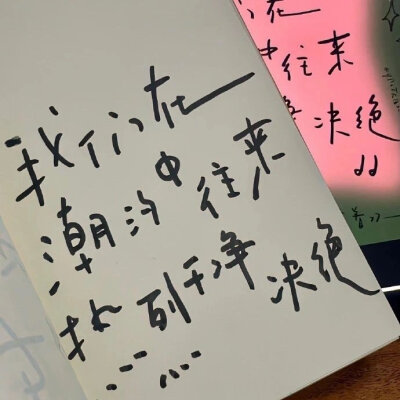 我们在
潮汐中往来
干净决绝
……
在
中往来
决绝